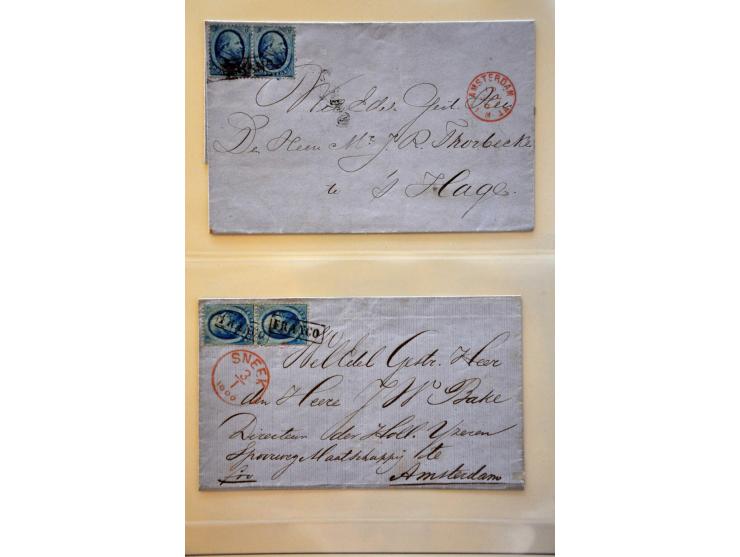 FRANCO
AMSTERDAM
Wel Edel Gest. Heer
De Heer Mr J. R. Thorbecke
te 's Hage.
FRANCO
FRANCO
SNEEK
3
1
Heer
den Heere J W Bake
Directeur der Holl. Yzeren
Spoorweg Maatschappij te
fro Amsterdam